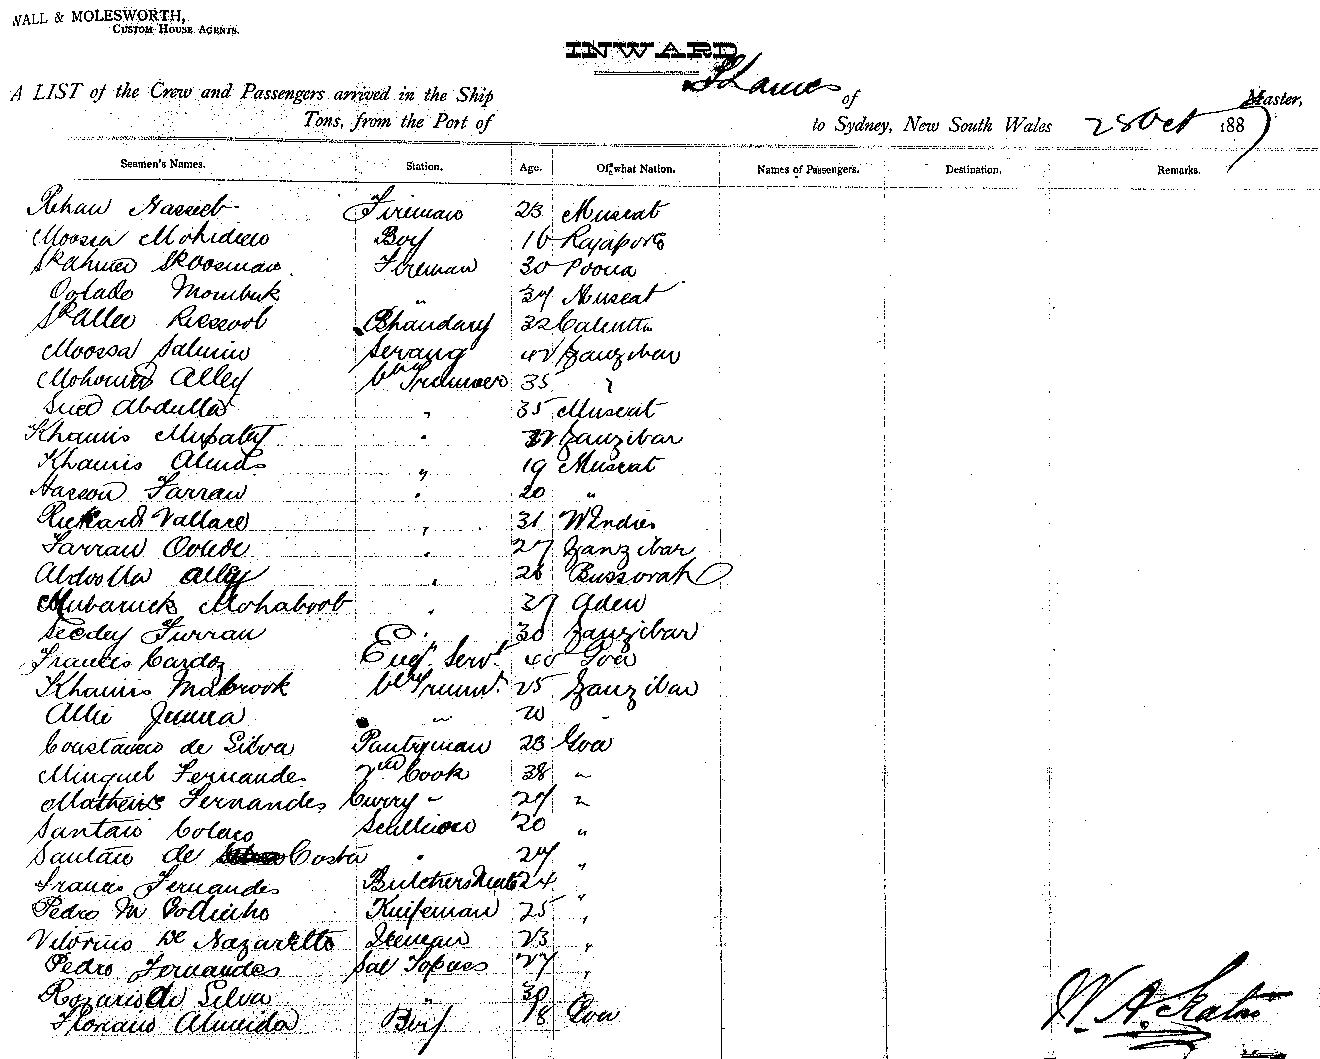 WALL & MOLESWORTH,
CUSTOM HOUSE AGENTS.
INWARD
A LIST of the Crew and Passengers arrived in the Ship Thames of Master,
Tons, from the Port of to Sydney, New South Wales 28 Oct 1887
Seamen's Names. Station. Age. Of what Nation. Names of Passengers. Destination. Remarks.
Rehan Nasseeb Fireman 23 Muscat
Moosa Mohideen Boy 16 Rajapore
Sk Ahmed Sk Oosman Fireman 30 Poona
Mombuk " 37 Muscat
Sk Allee Russool Bhandary 32 Calcutta
Moossa Salmin Serang 42 Zanzibar
Mohomed Alley Trimmer 35 "
Abdulla " 35 Muscat
Khamis " Zanzibar
Khamis Almas " 19 Muscat
Hasson Farran " 20 "
Richard Vallace " 31 W Indies
Farran " 27 Zanzibar
Abdoolla Alley " 26 Bussorah
Mubarrick Mohaboob " 37 Aden
Seedey Furran " 30 Zanzibar
Francis Cardoz Eng. Servt. 40 Goa
Khamis Mabrook Trimr. 25 Zanzibar
Allie Jumma " 20 "
de Silva Pantryman 23 Goa
Minguel Fernandes 2nd Cook 38 "
Fernandes Curry " 27 "
Santan Colaco Scullion 20 "
Santan de Costa " 27 "
Francis Fernandes Butchers Mate 24 "
Pedro M Knifeman 25 "
Vitorino De Nazaretto 23 "
Pedro Fernandes Sal Topass 27 "
Rozario de Silva " 30
Floriano Almeida Boy 18 Goa
W. A.